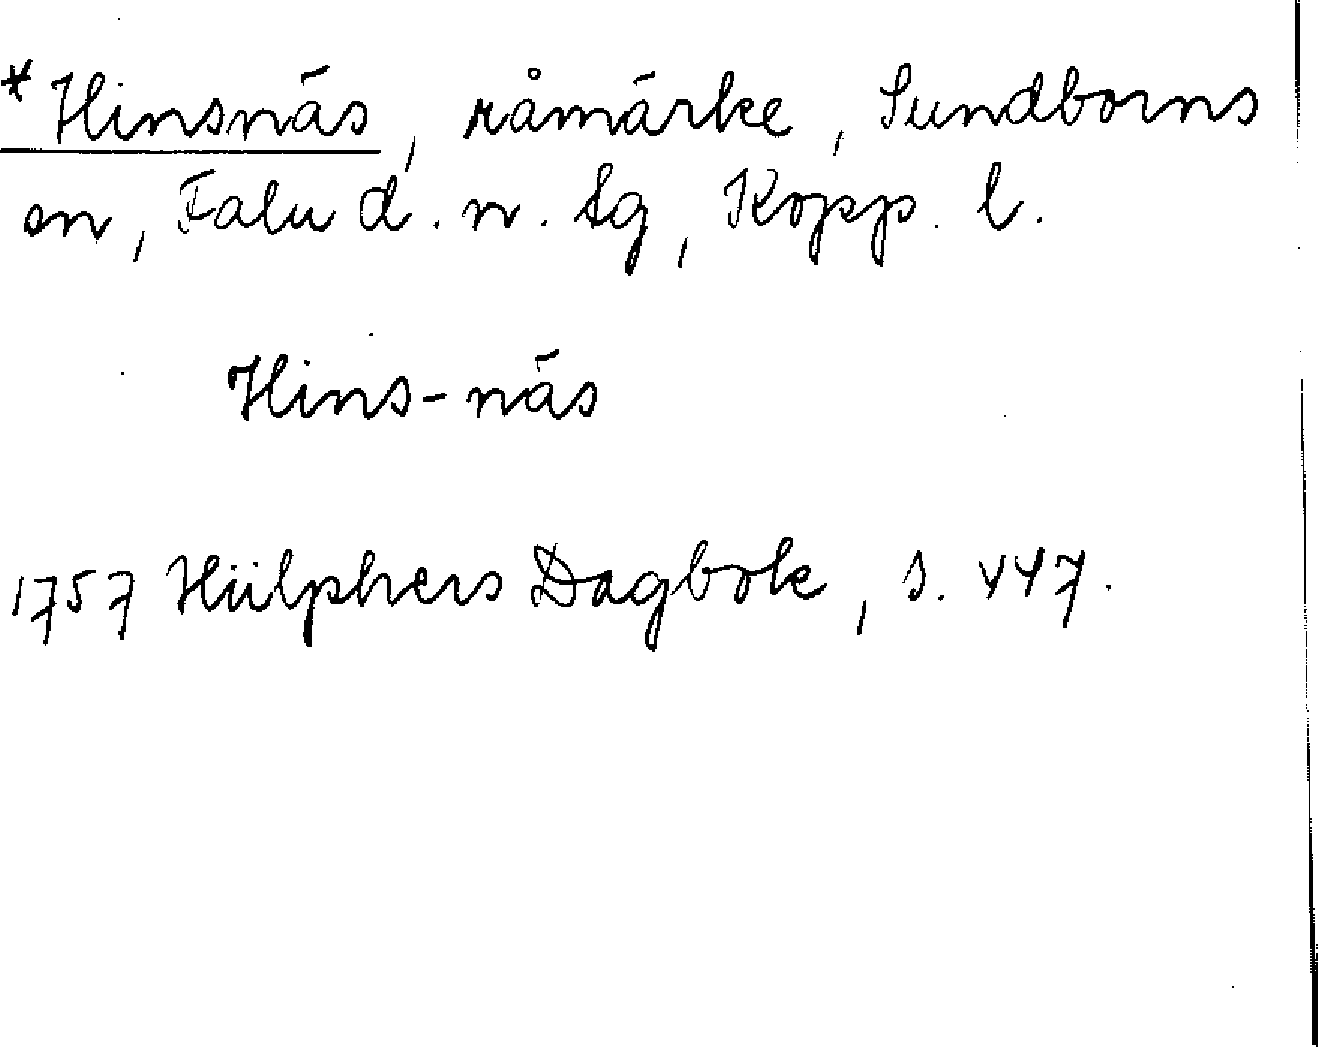 * Hinsnäs, råmärke, Sundborns
sn, Falu d. n. tg, Kopp. l.
Hins-näs
1757 Hülphers Dagbok, s. 447.